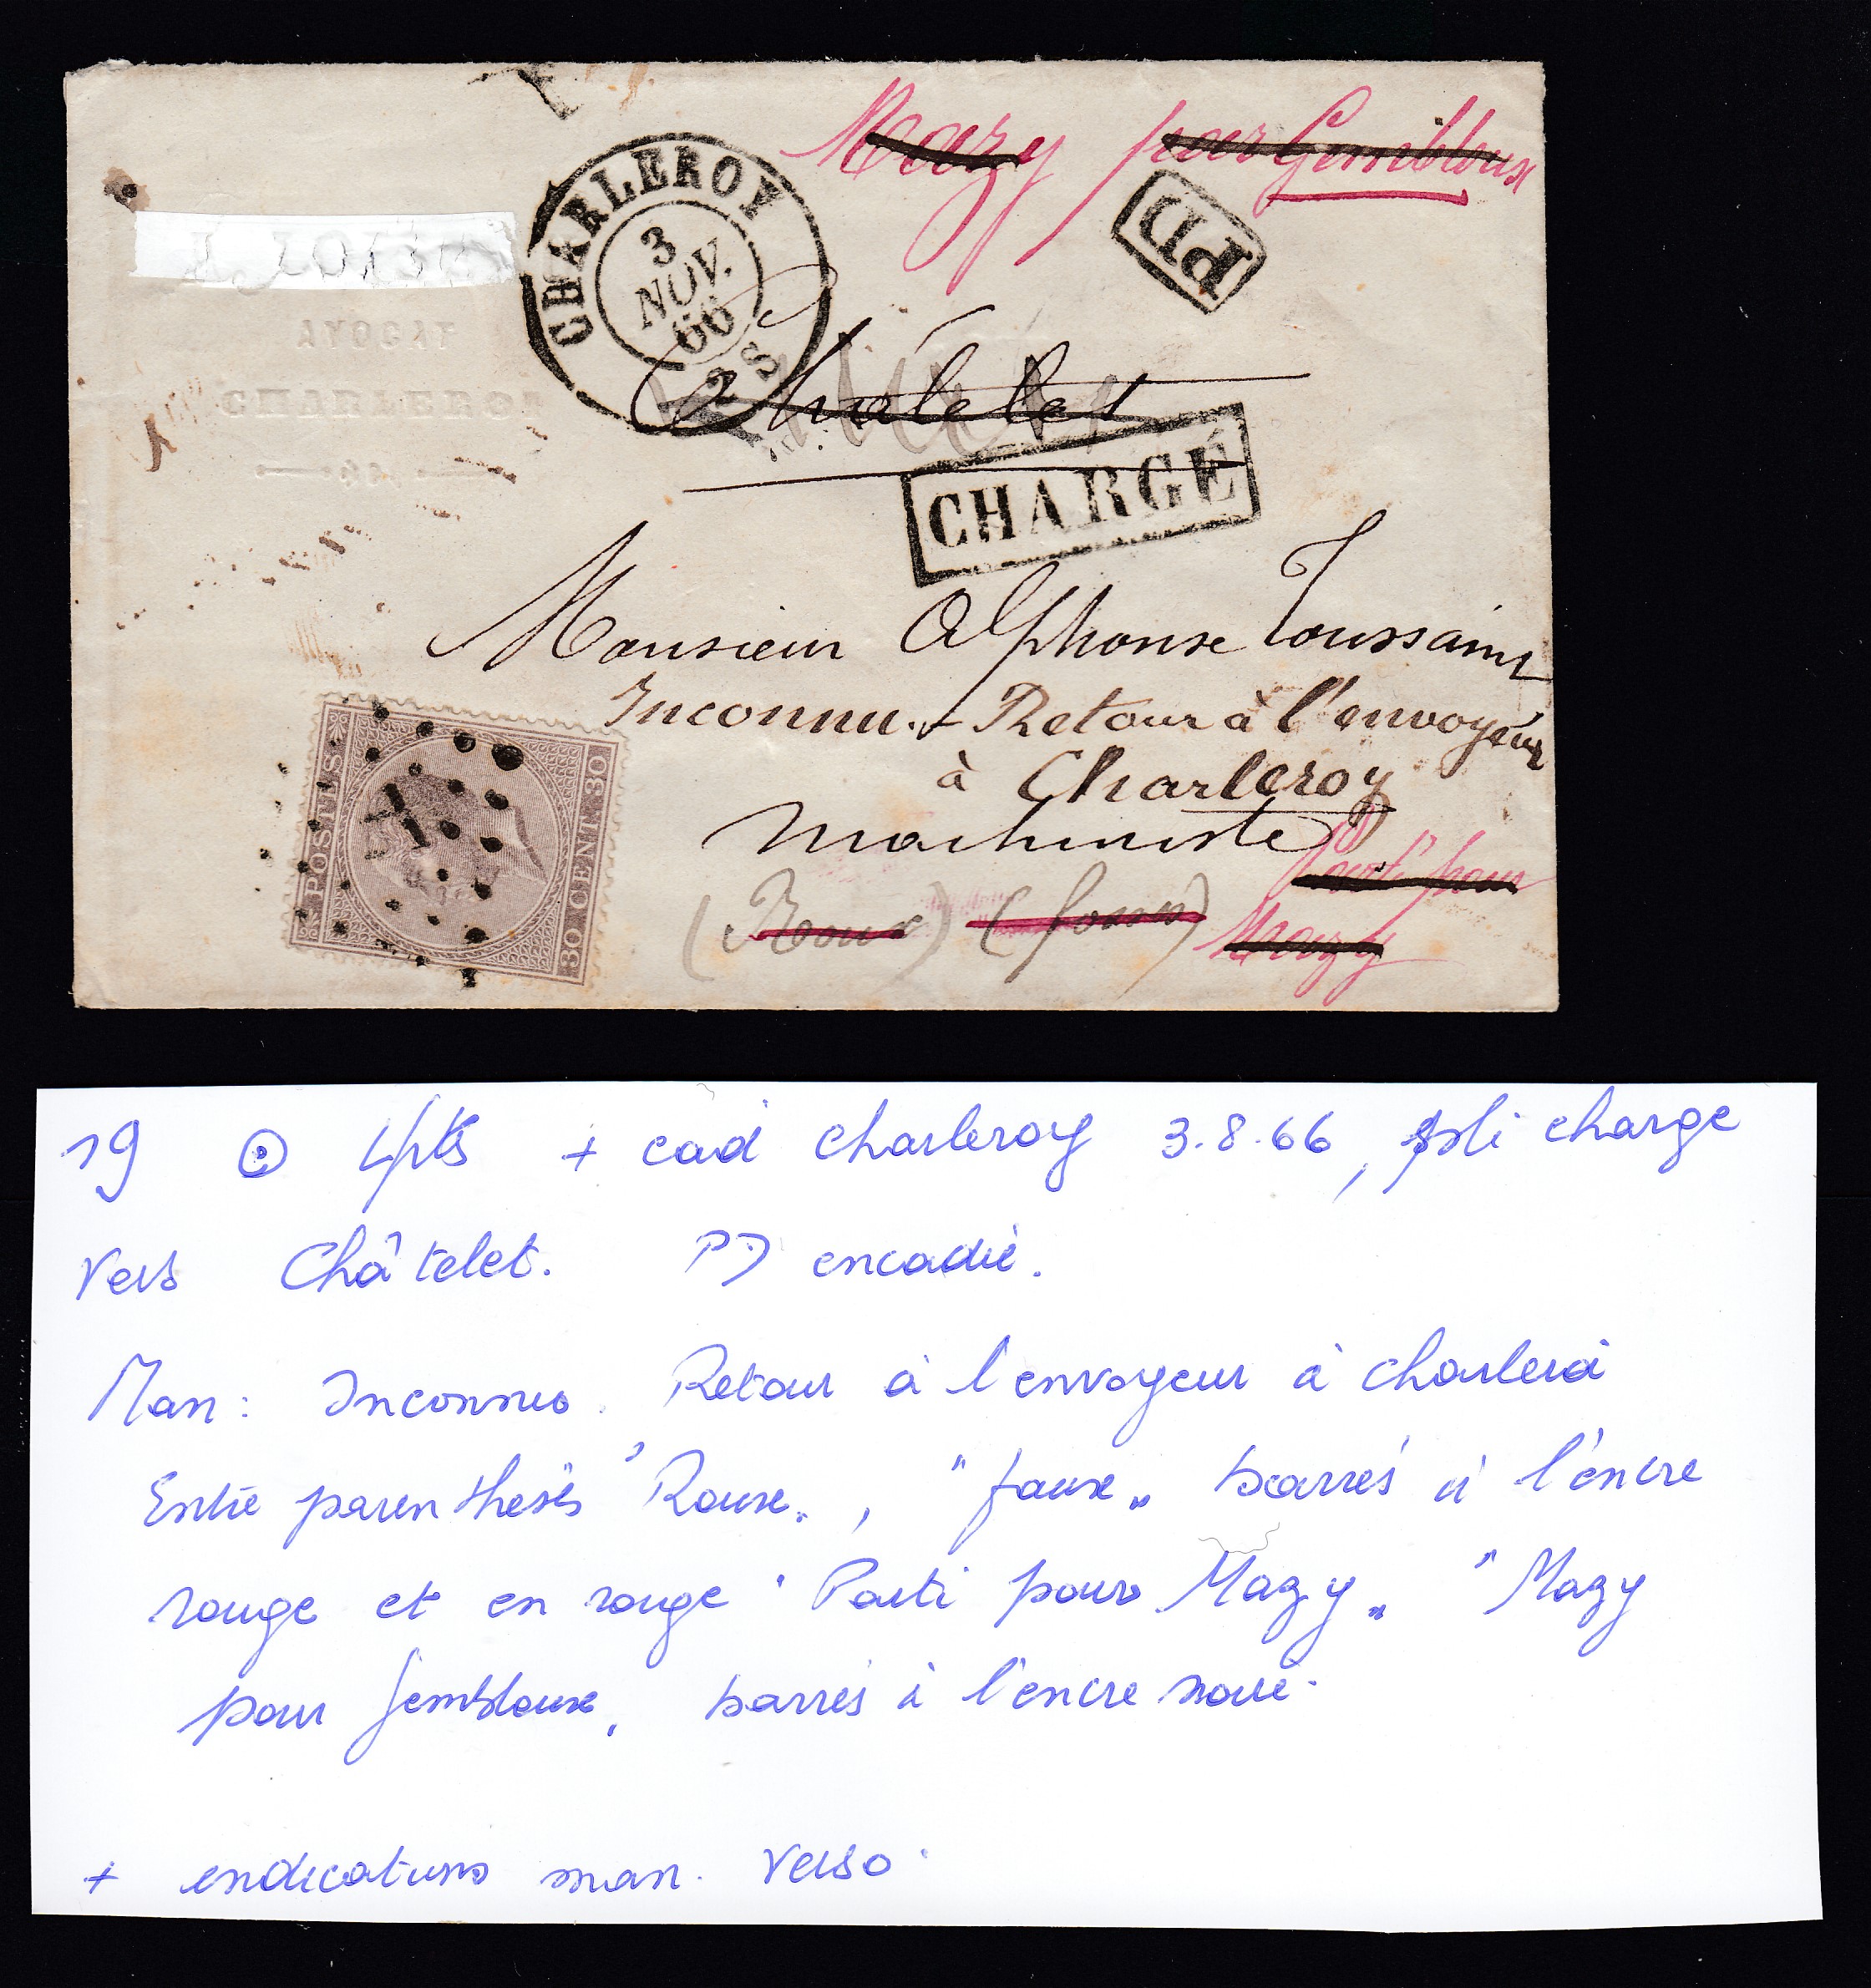 Mazy par Gembloux
PD
CHARLEROY
3
NOV.
66
2 S
AVOCAT
CHARLEROY
Châtelet
CHARGÉ
Monsieur Alphonse Toussaint
Inconnu. - Retour à l'envoyeur
à Charleroy
machiniste
Parti pour
(Roux)
Mazy
POSTES
30 CENT. 30
19 4pts + cad charleroy 3.8.66, pli charge
vers Châtelet. PD encadré.
Man: Inconnu. Retour à l'envoyeur à charleroi
Entre parenthesès "Roux", "faux" barrés à l'encre
rouge et en rouge "Parti pour Mazy" "Mazy
pour gembloux, barrés à l'encre noire.
+ indications man. verso.